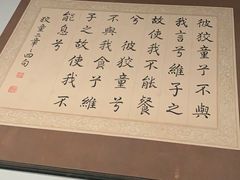 彼狡童兮不與
我言兮維子之
故使我不能餐
兮 彼狡童兮
不與我食兮維
子之故使我不
能息兮
狡童二章章四句